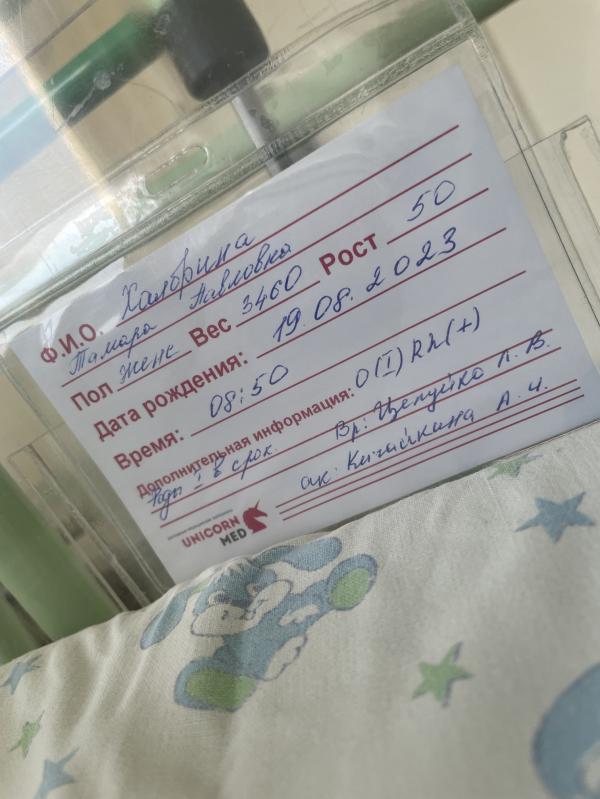 Ф.И.О. Халбрина
Тамара Павловна
Пол жене Вес 3460 Рост 50
Дата рождения: 19.08.2023
Время: 08:50
Дополнительная информация: O(I) Rh(+)
Роды I в срок. Вр: Цепуйко Л. В.
ак. Китайкина А. И.
UNICORN
MED